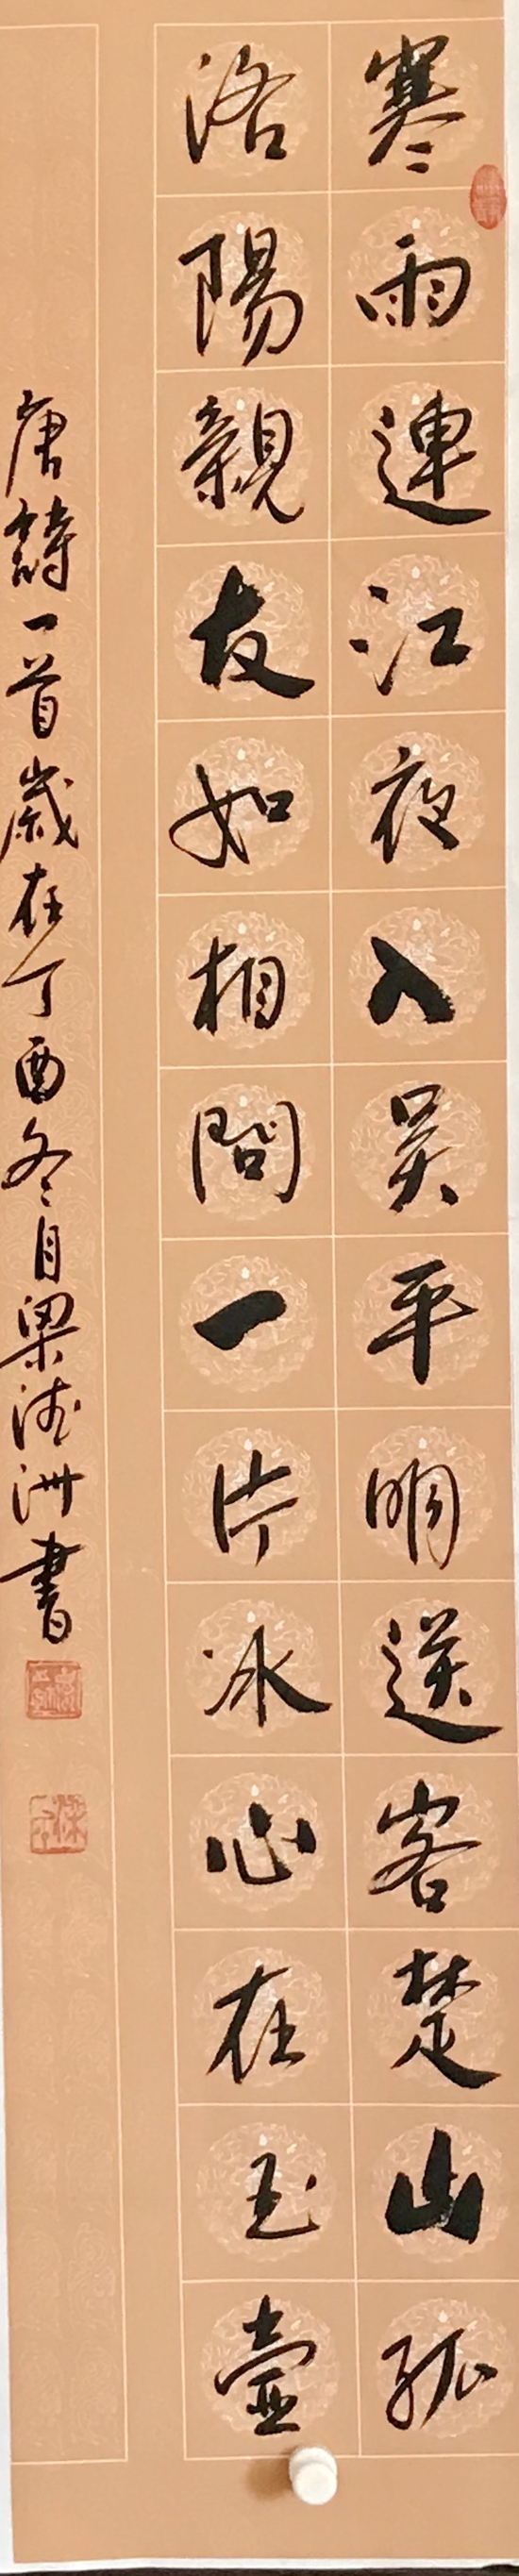 寒雨連江夜入吴平明送客楚山孤
洛陽親友如相問一片冰心在玉壺
唐詩一首歲在丁酉冬月梁洲書